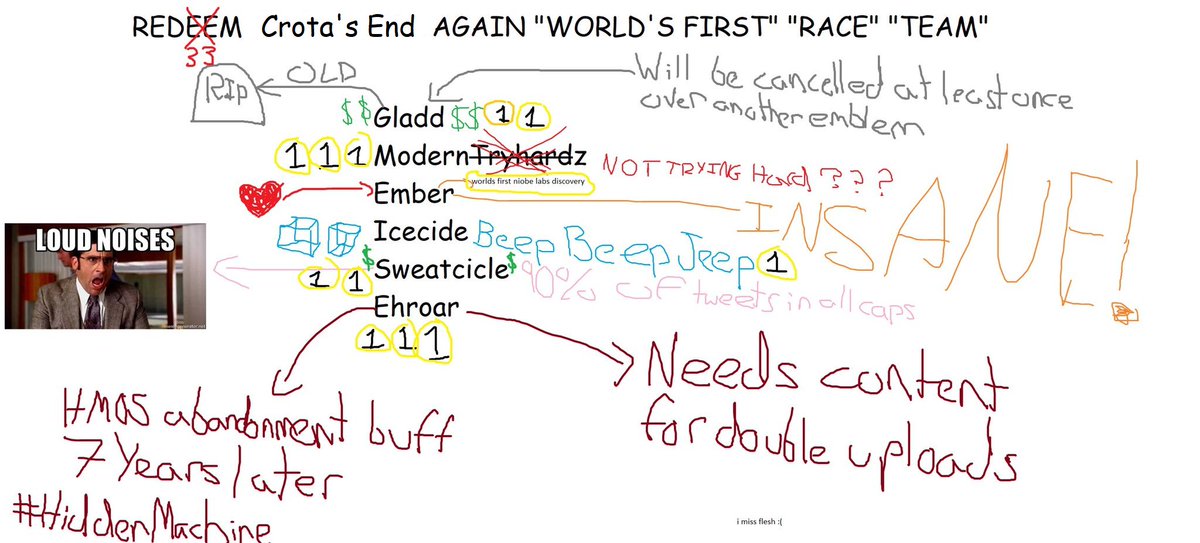 REDEEM Crota's End AGAIN "WORLD'S FIRST" "RACE" "TEAM"
33
RIP
OLD
Will be cancelled at least once
over another emblem
$$ Gladd $$ 1 1
1 1 1 ModernTryhardz
NOT TRYING Hard ???
worlds first niobe labs discovery
Ember
INSANE!
LOUD NOISES
Icecide Beep Beep Jeep 1
1 1 $ Sweatcicle $
90% of tweets in all caps
Ehroar
1 1 1
Needs content
for double uploads
HMOS abandonment buff
7 Years later
#HiddenMachine
i miss flesh :(